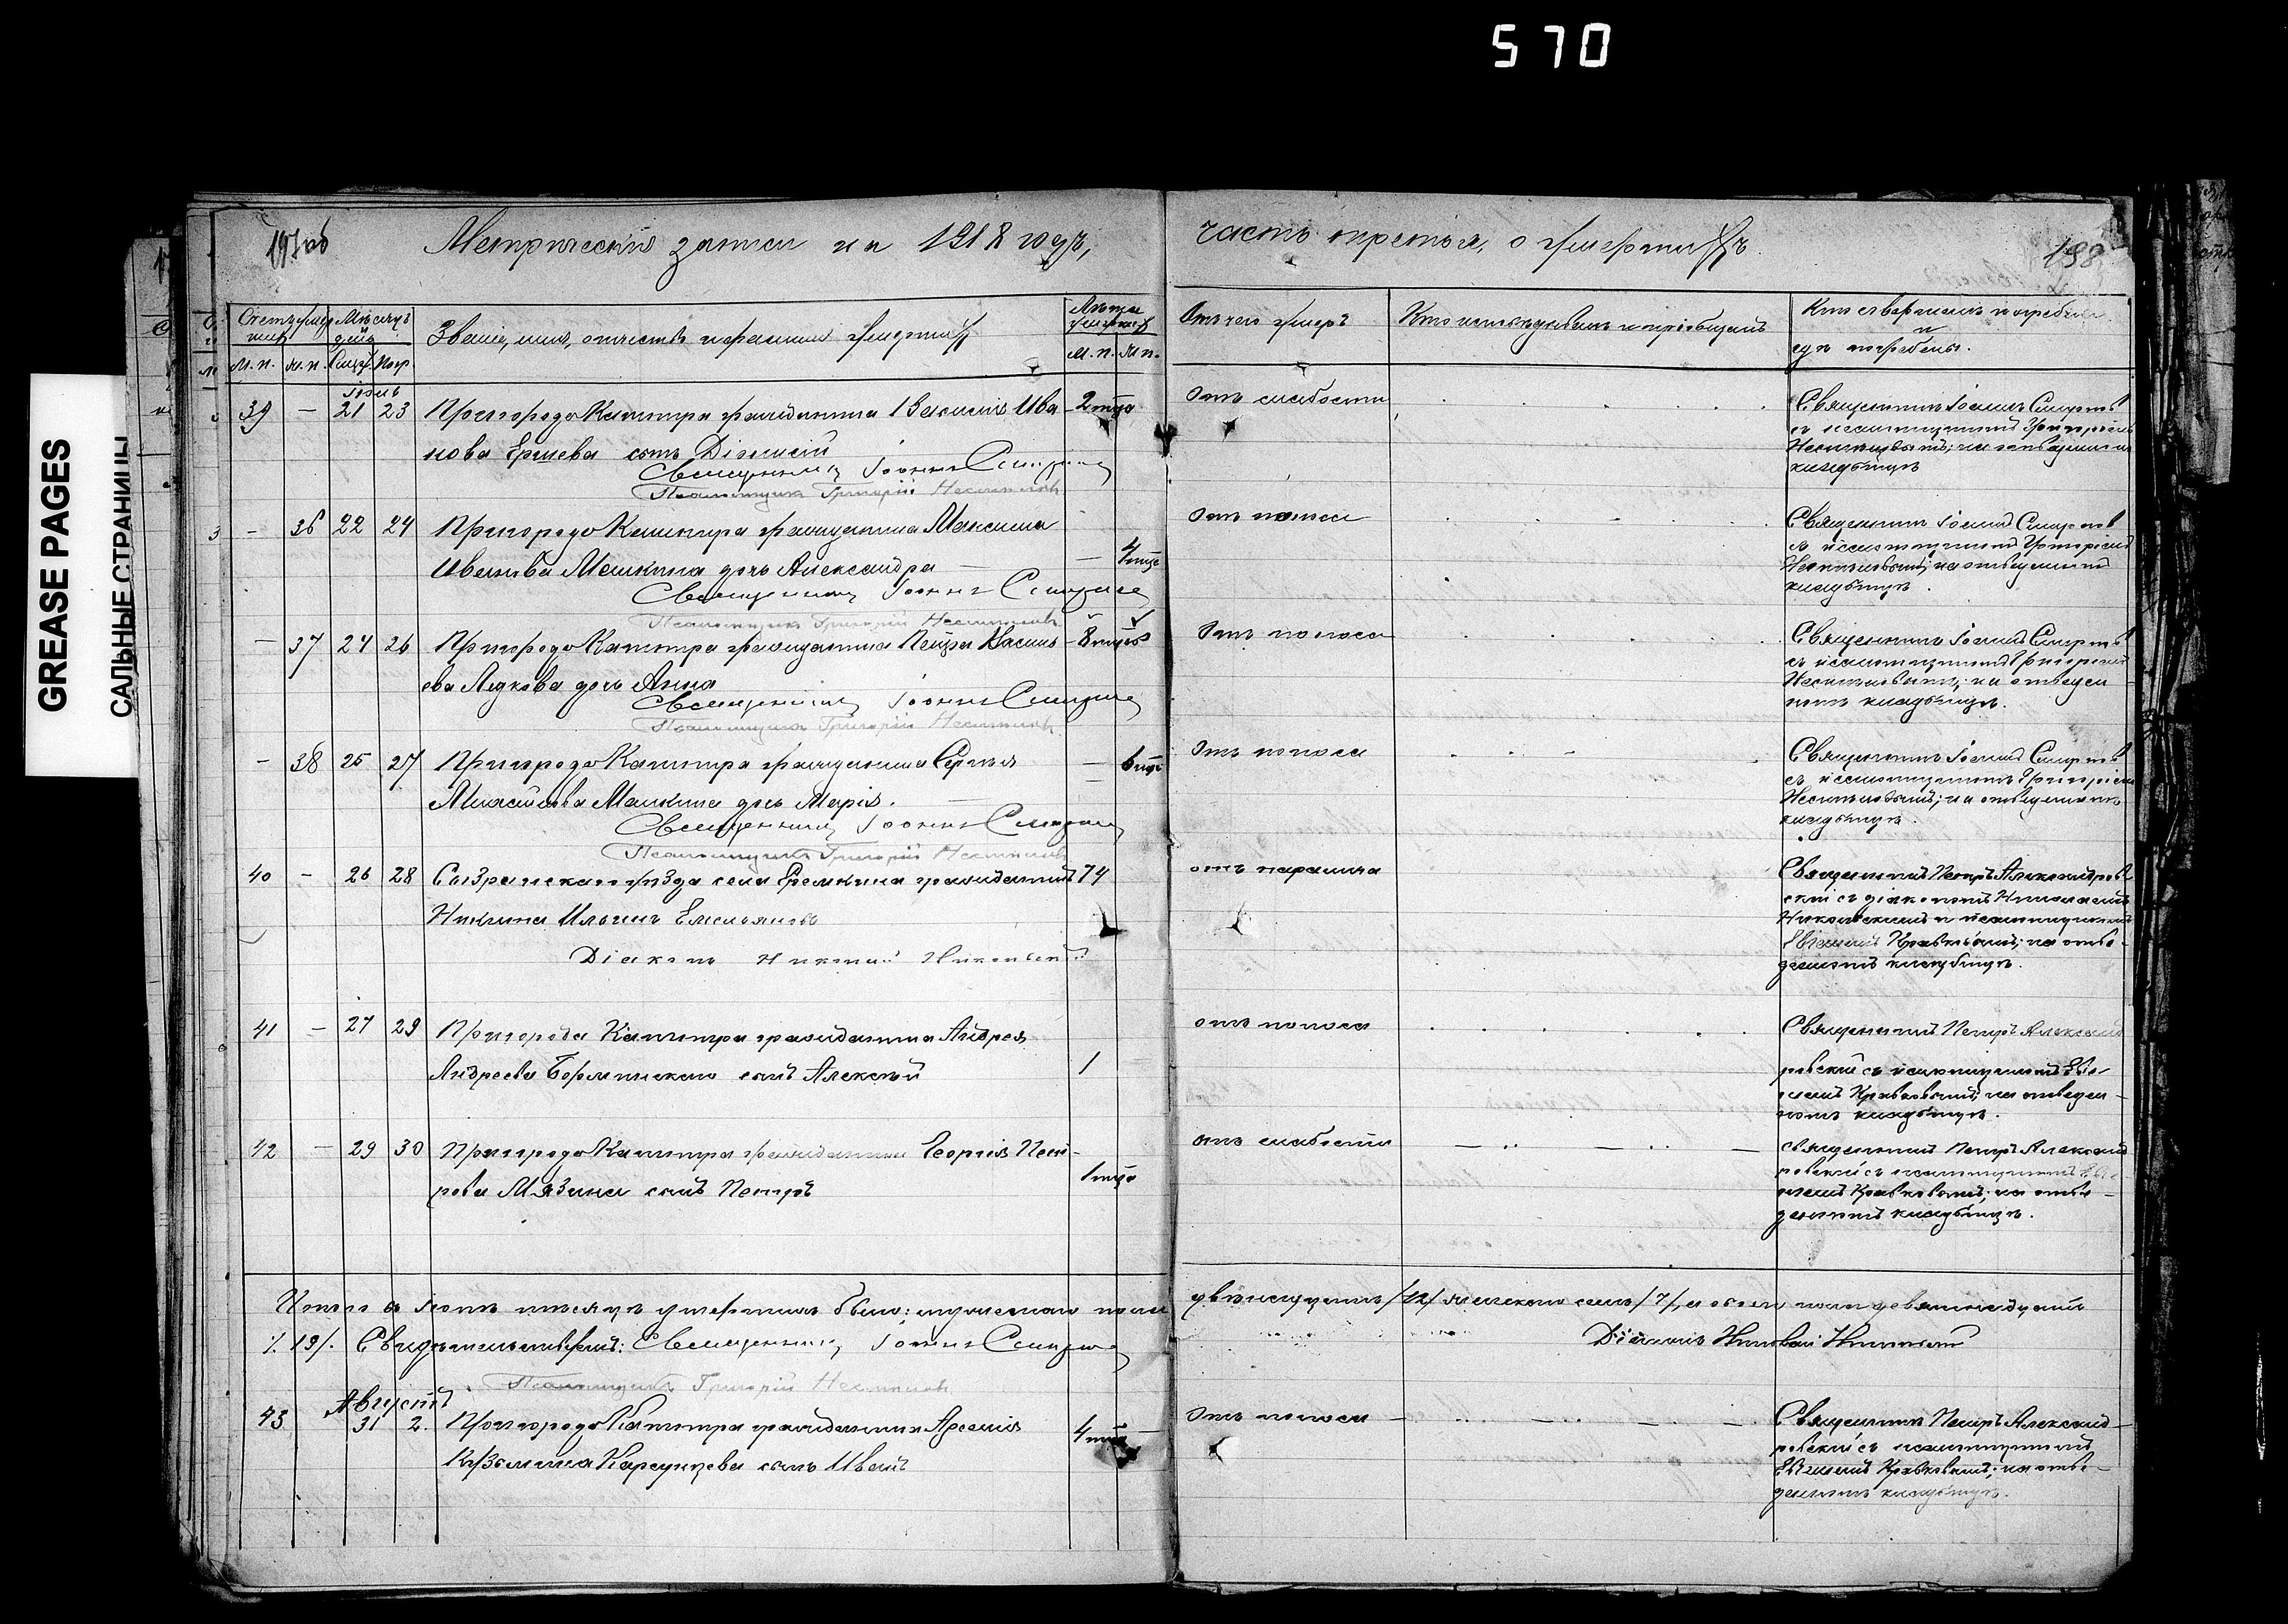 570
GREASE PAGES
САЛЬНЫЕ СТРАНИЦЫ
197об
Метрическія записи на 1918 годъ,
часть третья, о умершихъ.
198
Счетъ умер
шихъ
Мѣсяцъ
и
день
Званіе, имя, отчество и фамилія умершихъ
Лѣта
умершихъ
Отъ чего умеръ
Кто исповѣдывалъ и пріобщалъ
Кто совершалъ погребеніе
и
гдѣ погребены.
М. п. Ж. п. Смерт. Погр
М. п. Ж. п.
Іюль
39 — 21 23 Пригорода Кашпира гражданина Василія Ива
нова Ершева сынъ Діонисій
2 мца
Священникъ Іоаннъ Смирновъ
Псаломщикъ Григорій
Отъ слабости
Священникъ Іоаннъ Смирновъ
съ псаломщикомъ Григоріемъ
кладбищѣ
— 36 22 24 Пригорода Кашпира гражданина Максима
Иванова Мошкина дочь Александра
— 4 мце
Священникъ Іоаннъ Смирновъ
Псаломщикъ Григорій
Отъ поноса
Священникъ Іоаннъ Смирнов
съ псаломщикомъ Григоріемъ
на отведенномъ
кладбищѣ.
— 37 24 26 Пригорода Кашпира гражданина Петра Василь
ева Ледкова дочь Анна
8 мцевъ
Священникъ Іоаннъ Смирновъ
Псаломщикъ Григорій
Отъ поноса
Священникъ Іоаннъ Смирновъ
съ псаломщикомъ Григоріемъ
на отведен
номъ кладбищѣ.
— 38 25 27 Пригорода Кашпира гражданина Сергѣя
Михайлова Мошкина дочь Марія.
— 6 мце
Священникъ Іоаннъ Смирновъ
Псаломщикъ Григорій
Отъ поноса
Священникъ Іоаннъ Смирновъ
съ псаломщикомъ Григоріемъ
на отведенномъ
кладбищѣ.
40 — 26 28 Сызранскаго уѣзда села Еремкина гражданинъ
Никита Ильинъ Емельяновъ
74
Діаконъ Николай Никольскій
отъ паралича
Священникъ Петръ Александров
скій съ діакономъ Николаемъ
Никольскимъ и псаломщикомъ
на отве-
денномъ кладбищѣ.
41 — 27 29 Пригорода Кашпира гражданина Андрея
Андреева сынъ Алексѣй
1
отъ поноса
Священникъ Петръ Александ
ровскій съ псаломщикомъ
на отведен-
номъ кладбищѣ.
42 — 29 30 Пригорода Кашпира гражданина Георгія Пет-
рова Мязина сынъ Петръ
1 мца
отъ слабости
священникъ Петръ Александ
ровскій съ псаломщикомъ
на отве-
денномъ кладбищѣ.
Итого въ Іюлѣ мѣсяцѣ умершихъ было: мужескаго пола
двѣнадцать /12/ женскаго семь /7/, а обоего пола девятнадцать
/19/. Свидѣтельствуемъ: Священникъ Іоаннъ Смирновъ
Діаконъ Николай Никольскій
Псаломщикъ Григорій
Августъ
43 31 2. Пригорода Кашпира гражданина Арсенія
Кузьмина Карсунцева сынъ Иванъ
4 мца
Отъ поноса
Священникъ Петръ Александ-
ровскій съ псаломщикомъ
на отве-
денномъ кладбищѣ.